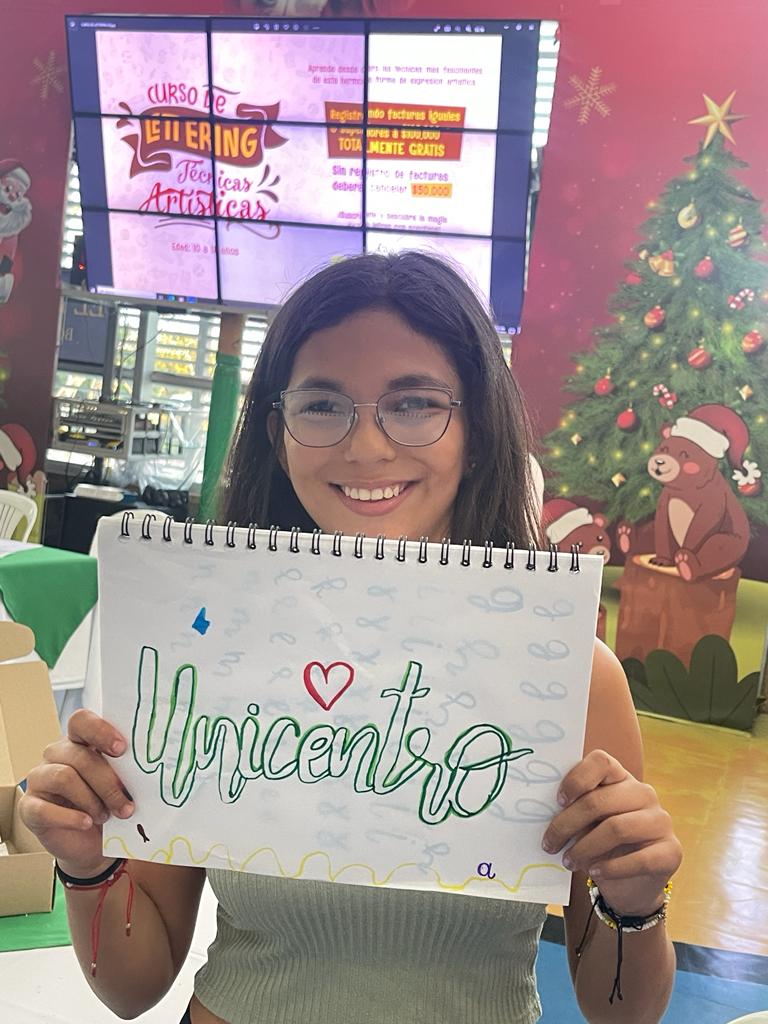 CURSO DE
LETTERING
Técnicas
Artísticas
Aprende desde cero las técnicas más fascinantes
de esta hermosa forma de expresión artística
Registrando facturas iguales
o superiores a $100.000
TOTALMENTE GRATIS
Sin registro de facturas
deberá cancelar $50.000
¡Suscríbete y descubre la magia
Unicentro
a